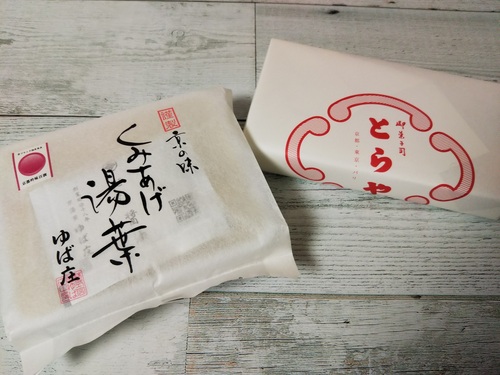 謹製
京の味
くみあげ
湯葉
ゆば庄
御菓子司
とらや